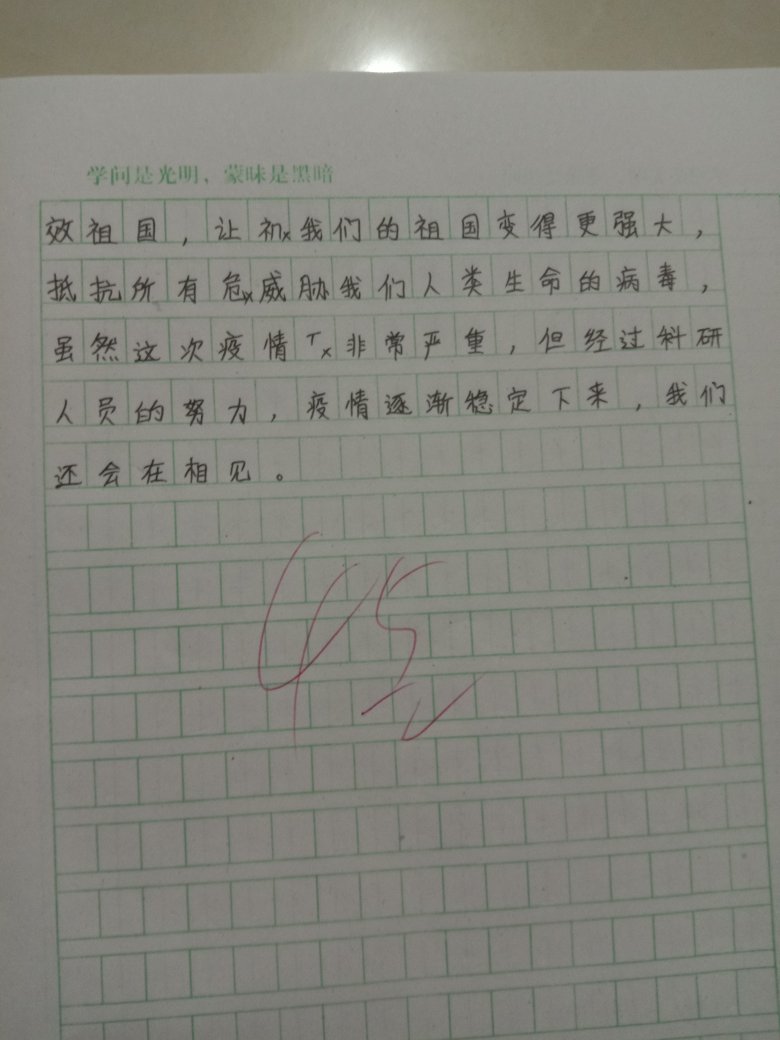 学问是光明，蒙昧是黑暗
效祖国，让初我们的祖国变得更强大，
抵抗所有危威胁我们人类生命的病毒，
虽然这次疫情非常严重，但经过科研
人员的努力，疫情逐渐稳定下来，我们
还会在相见。
45